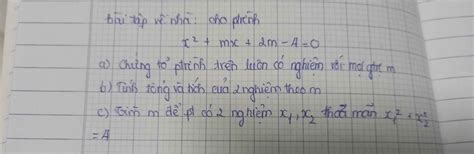 bài tập về nhà: cho ptrình
x² + mx + 2m - 4 = 0
a) Chứng tỏ ptrình trên luôn có nghiệm với mọi gtrị m
b) Tính tổng và tích của 2 nghiệm theo m
c) Tìm m để pt có 2 nghiệm x₁, x₂ thoả mãn x₁² + x₂²
= 4